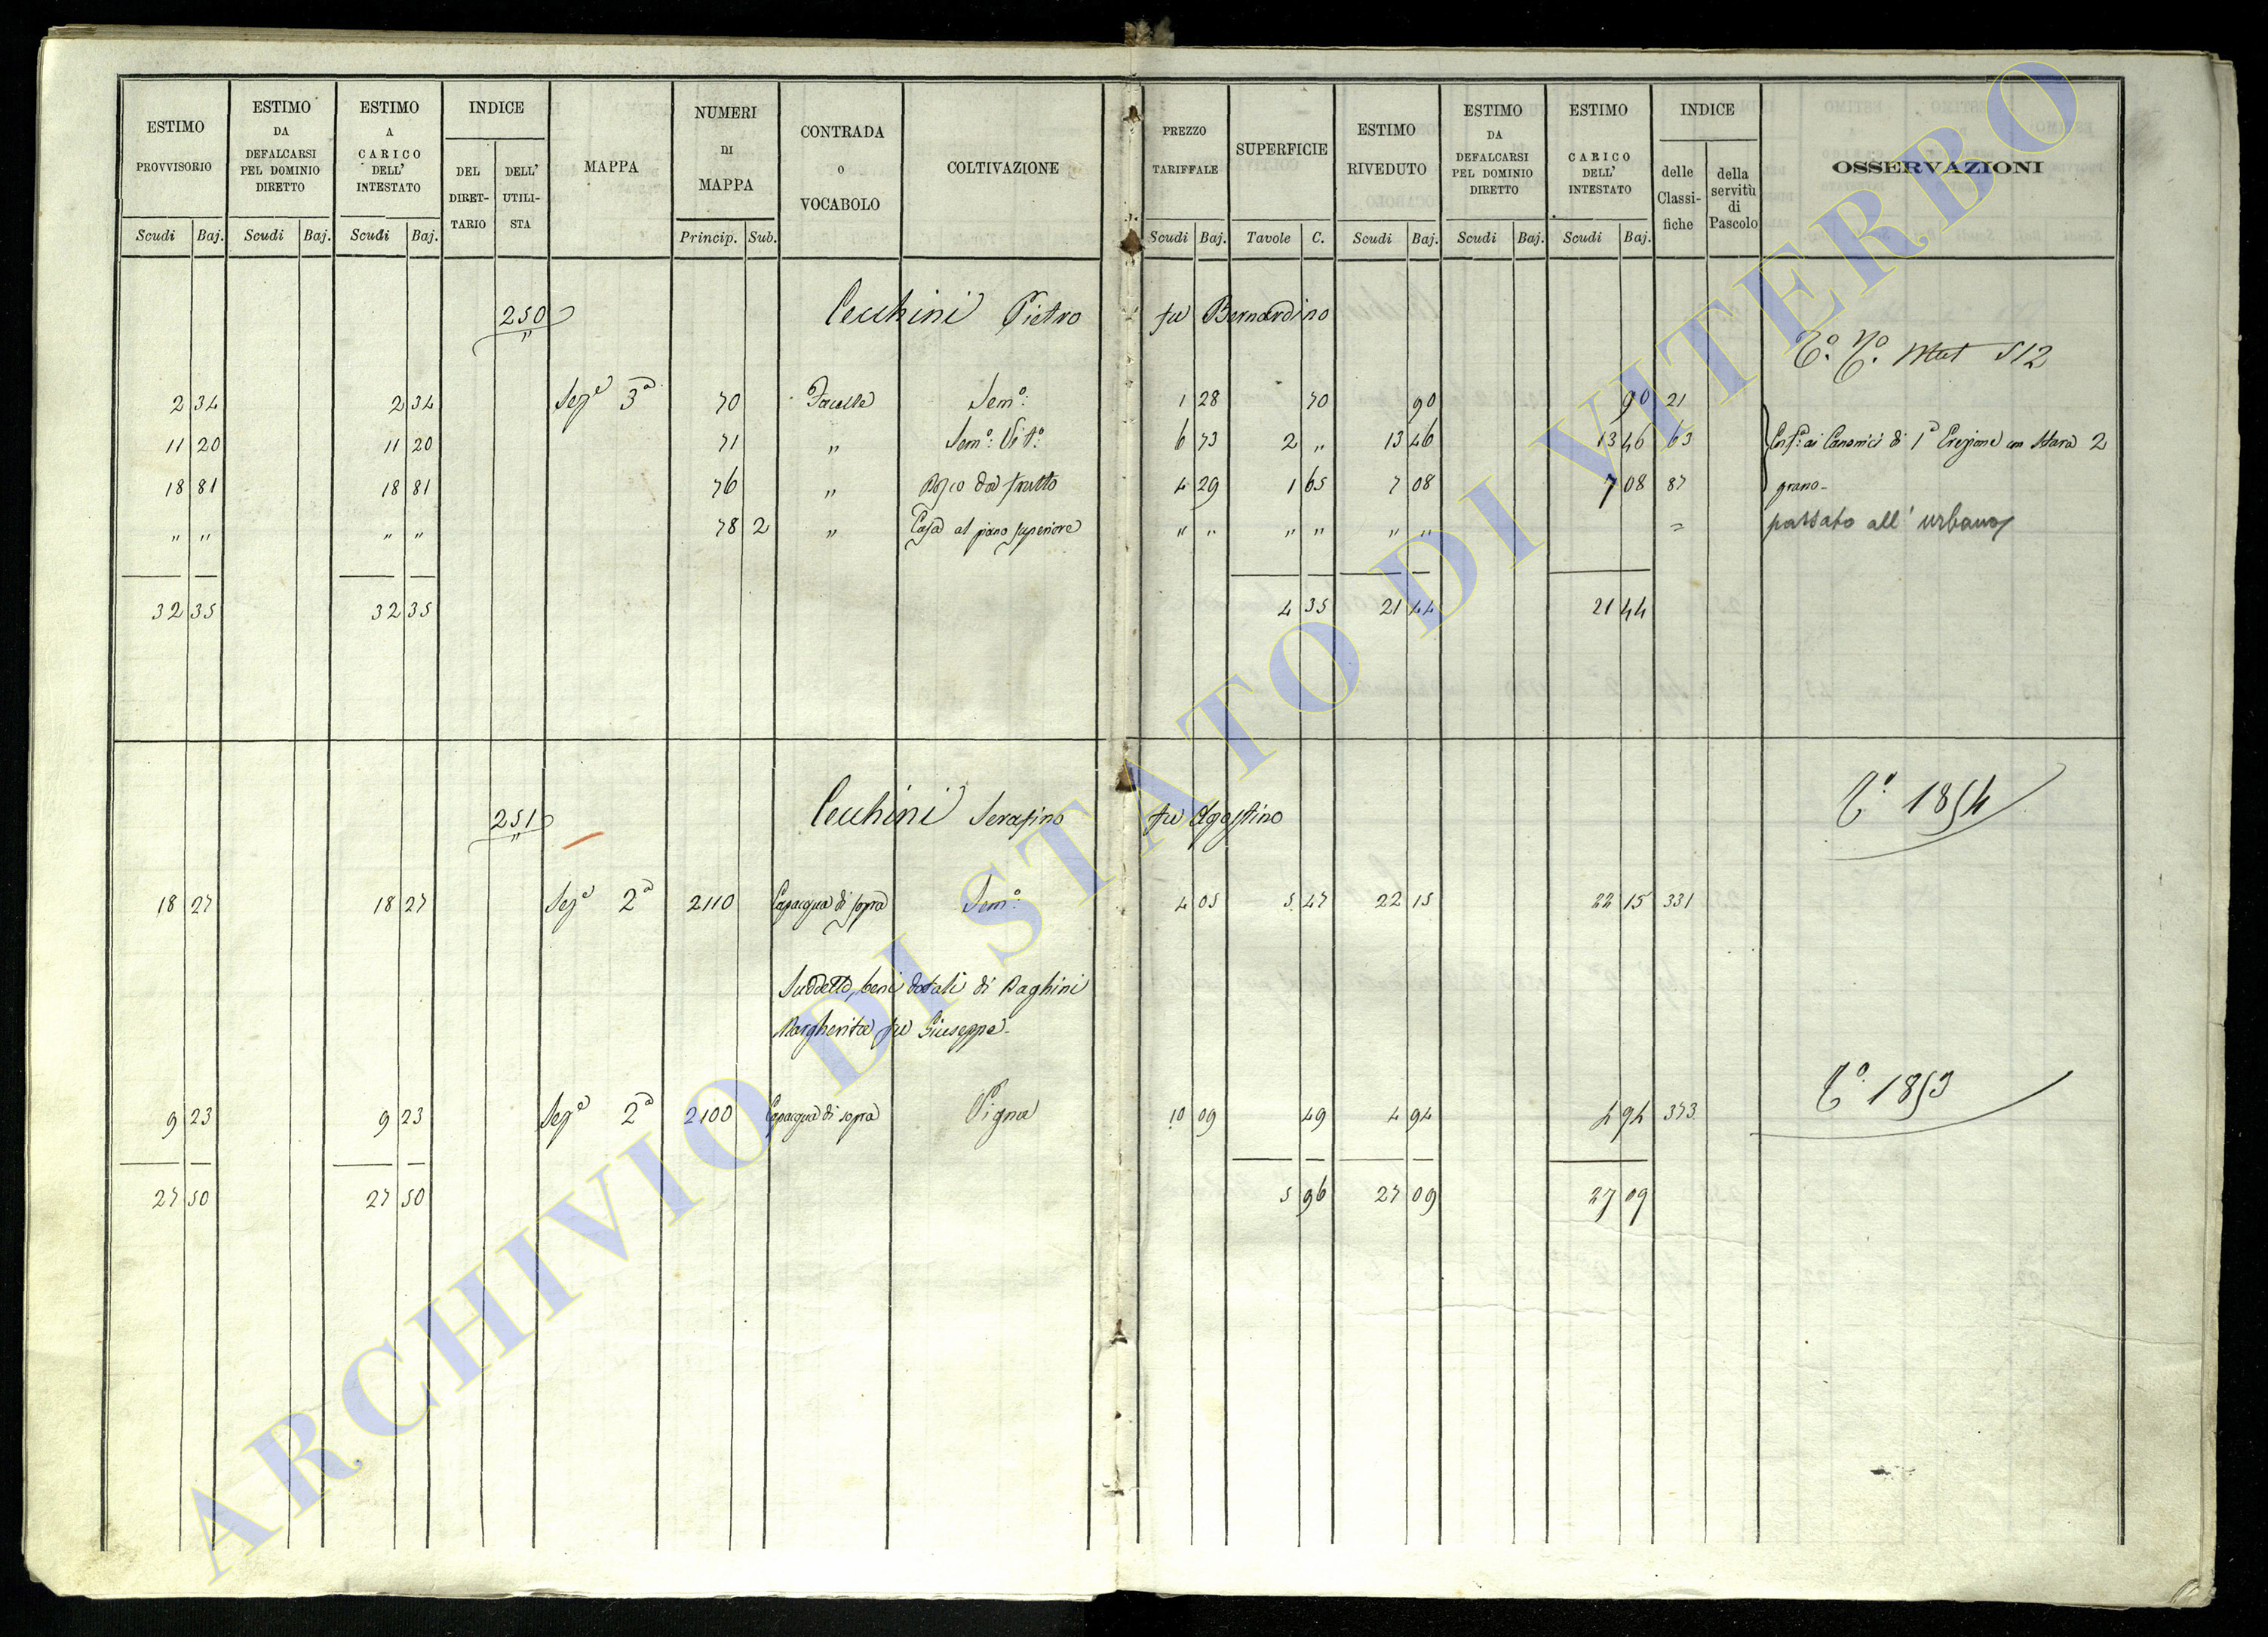 ESTIMO PROVVISORIO Scudi Baj. ESTIMO DA DEFALCARSI PEL DOMINIO DIRETTO Scudi Baj. ESTIMO A CARICO DELL' INTESTATO Scudi Baj. INDICE DEL DIRETTARIO DELL' UTILISTA MAPPA NUMERI DI MAPPA Princip. Sub. CONTRADA O VOCABOLO COLTIVAZIONE PREZZO TARIFFALE Scudi Baj. SUPERFICIE Tavole C. ESTIMO RIVEDUTO Scudi Baj. ESTIMO DA DEFALCARSI PEL DOMINIO DIRETTO Scudi Baj. ESTIMO CARICO DELL' INTESTATO Scudi Baj. INDICE delle Classifiche della servitù di Pascolo OSSERVAZIONI
250 Cecchini Pietro fu Bernardino
Mut 512
2 34 2 34 Seze 3a 70 Sem.o: 1 28 70 90 90 21
11 20 11 20 71 " Sem.o: Vit.o: 6 73 2 " 13 46 13 46 63 ai Canonici di 1a Erezione con Stara 2
18 81 18 81 76 " Bosco da frutto 4 29 1 65 7 08 7 08 87 grano -
" " " " 78 2 " Casa al piano superiore " " " " " " = passato all' urbano
32 35 32 35 4 35 21 44 21 44
251 Cecchini Serafino fu Agostino
T.o 1854
18 27 18 27 Seze 2a 2110 Capacqua di sopra Sem.o: 4 05 5 47 22 15 22 15 331
Suddetto, beni dotali di Baghini
Margherita fu Giuseppe -
T.o 1853
9 23 9 23 Seze 2a 2100 Capacqua di sopra Vigna 10 09 49 4 94 4 94 373
27 50 27 50 5 96 27 09 27 09
ARCHIVIO DI STATO DI VITERBO